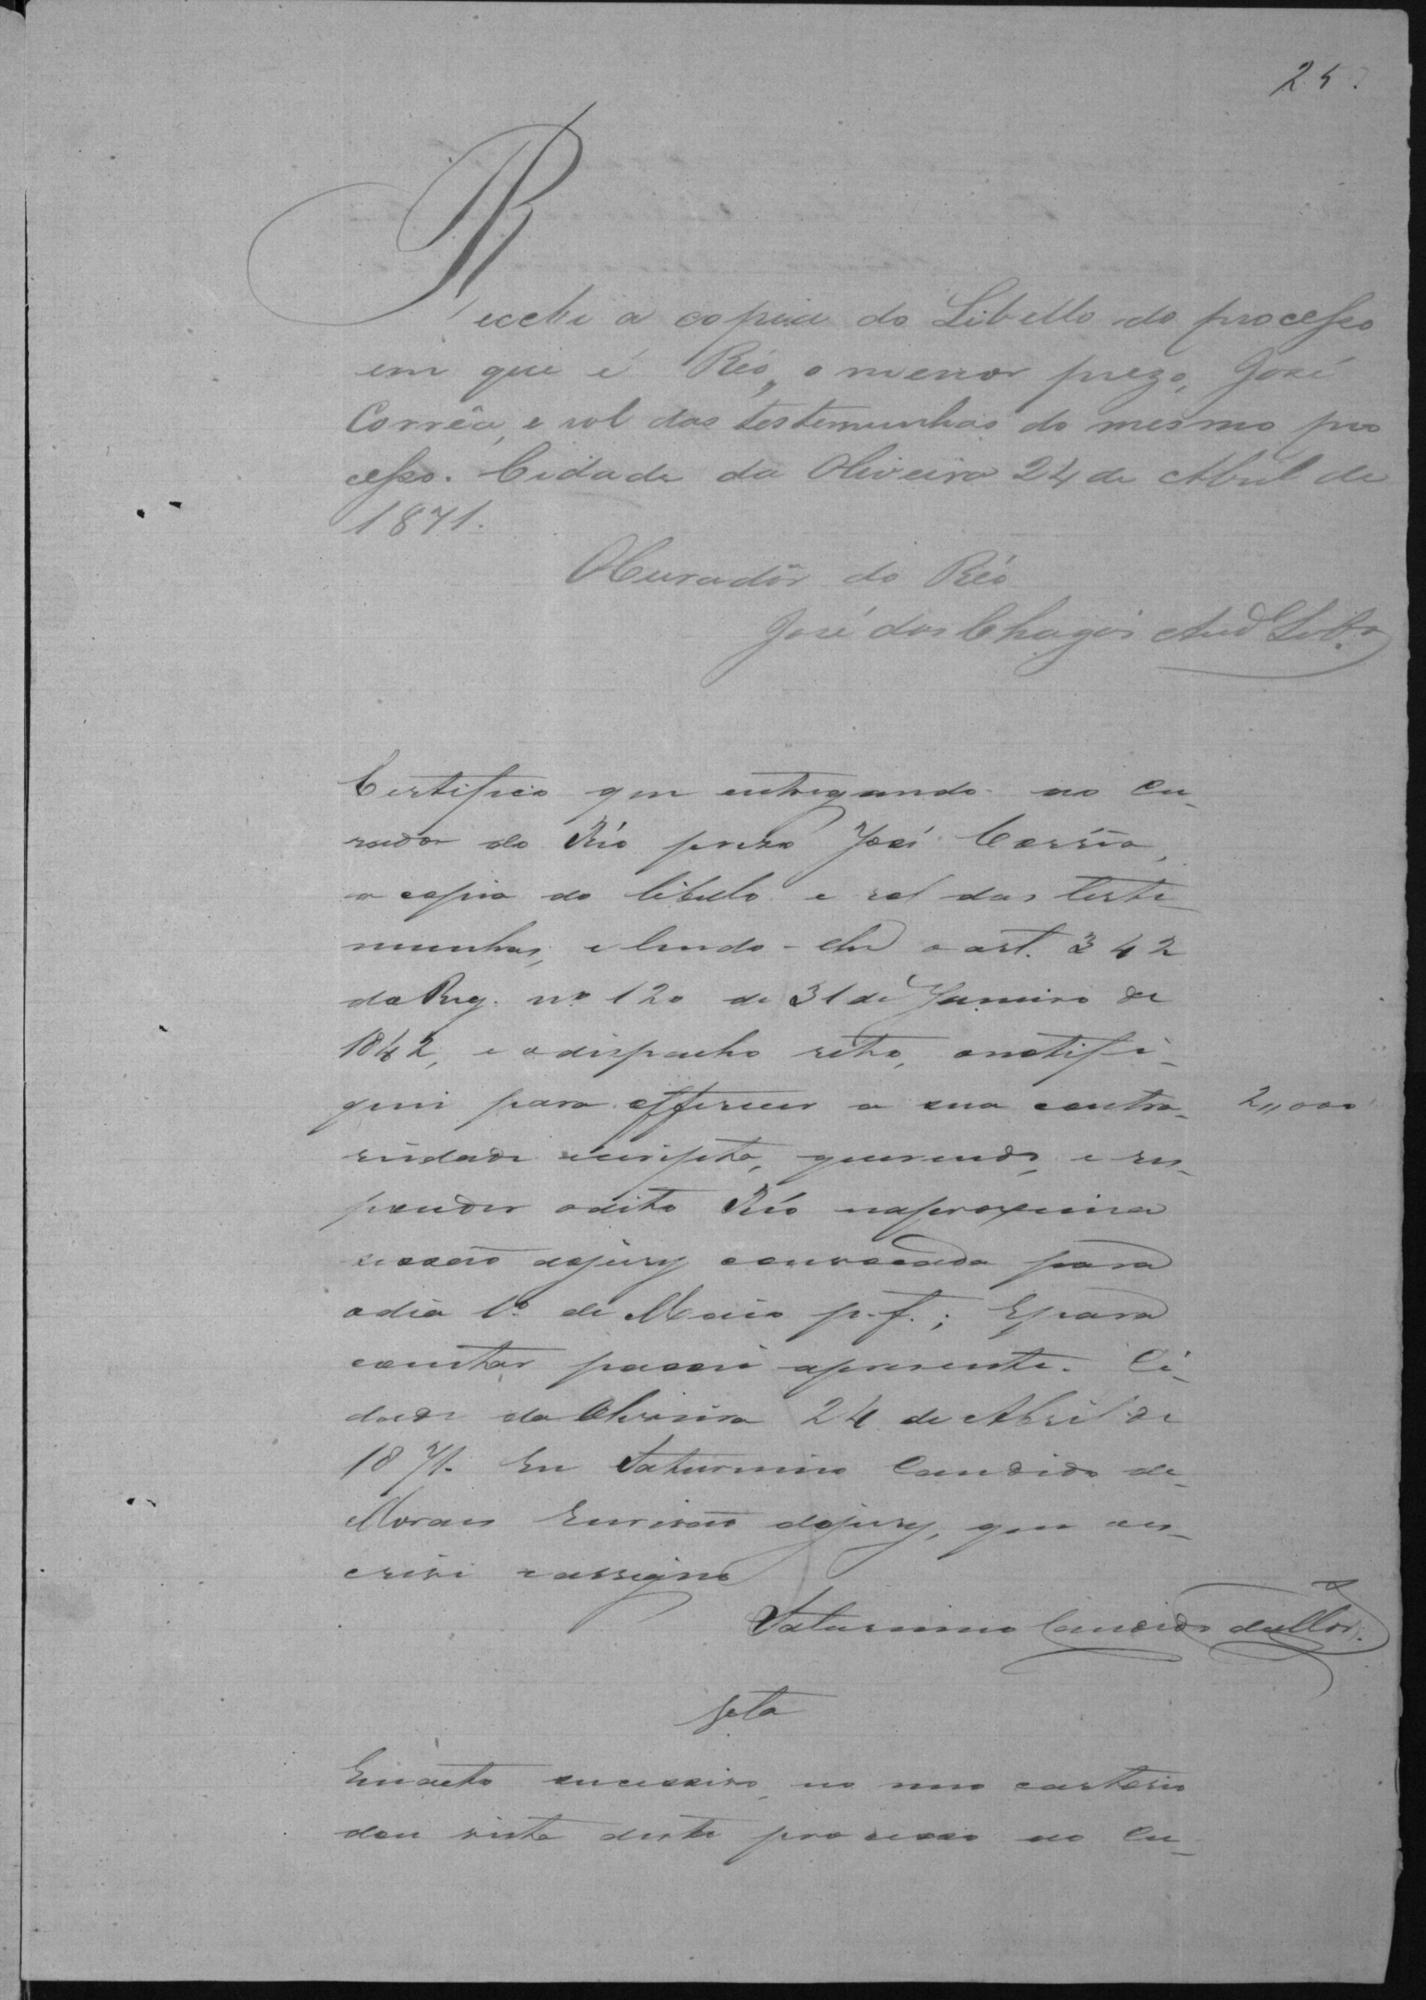 25
Recebi a copia do Libello do processo
em que é Réo, o menor prezo, José
Corrêa, e rol das testemunhas do mesmo pro
cesso. Cidade da Oliveira 24 de Abril de
1871.
O Curadôr do Réo
José das Chagas And.e
Certifico que entregando ao Cu-
rador do Réo prezo José Corrêa,
a copia do libello e rol das teste-
munhas, e lendo-lhe o art. 342
do Reg. nº 120 de 31 de Janeiro de
1842, e o dispacho retro, o notifi-
quei para offerecer a sua contra-
riedade escripta, querendo, e res-
ponder o dito Réo na proxima
sessão do jury convocada para
o dia 1º de Maio p. f.; E para
constar passei a presente. Ci-
dade da Oliveira 24 de Abril de
1871. Eu Saturnino Candido de
Moraes Escrivão do jury, que es-
crevi e assigno
2,,000
Saturnino Candido de Mor.
Em acto sucessivo, no meu cartorio
dou vista deste processo ao Cu-